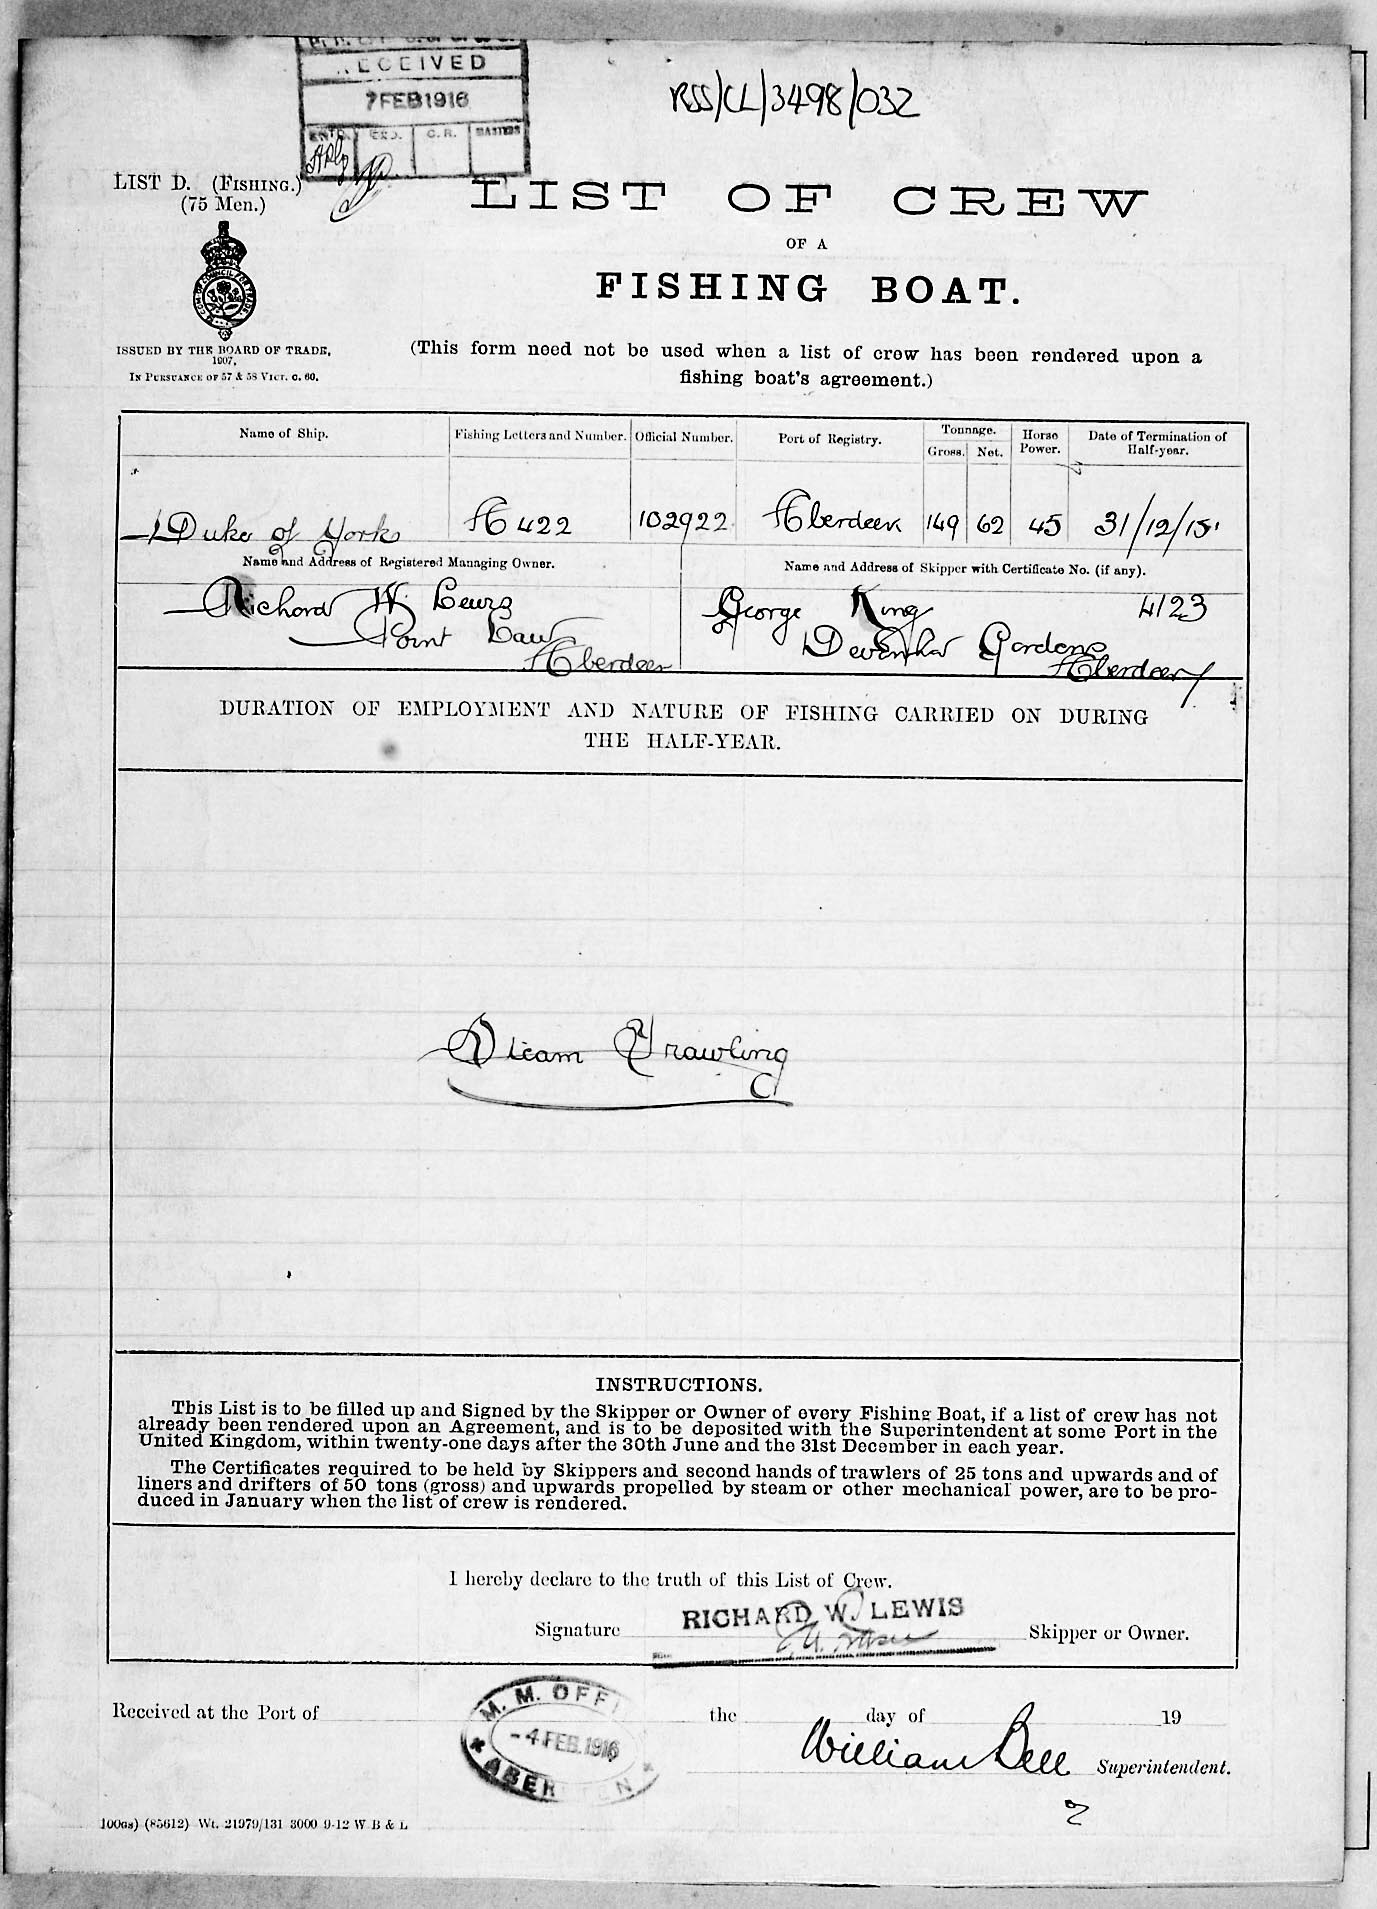 RECEIVED
7 FEB 1916
ENTD. EXD. C.R. MASTERS
RSS/CL/3498/032
LIST D. (FISHING.)
(75 Men.)
LIST OF CREW
OF A
FISHING BOAT.
ISSUED BY THE BOARD OF TRADE,
1907.
IN PURSUANCE OF 57 & 58 VICT. C. 60.
(This form need not be used when a list of crew has been rendered upon a
fishing boat's agreement.)
Name of Ship. Fishing Letters and Number. Official Number. Port of Registry. Tonnage. Gross. Net. Horse Power. Date of Termination of Half-year.
Duke of York A 422 102922 Aberdeen 149 62 45 31/12/15
Name and Address of Registered Managing Owner. Name and Address of Skipper with Certificate No. (if any).
Richard W. Lewis George King 4123
Point Law Devanha Gardens
Aberdeen Aberdeen
DURATION OF EMPLOYMENT AND NATURE OF FISHING CARRIED ON DURING
THE HALF-YEAR.
Steam Trawling
INSTRUCTIONS.
This List is to be filled up and Signed by the Skipper or Owner of every Fishing Boat, if a list of crew has not
already been rendered upon an Agreement, and is to be deposited with the Superintendent at some Port in the
United Kingdom, within twenty-one days after the 30th June and the 31st December in each year.
The Certificates required to be held by Skippers and second hands of trawlers of 25 tons and upwards and of
liners and drifters of 50 tons (gross) and upwards propelled by steam or other mechanical power, are to be pro-
duced in January when the list of crew is rendered.
I hereby declare to the truth of this List of Crew.
Signature RICHARD W. LEWIS Skipper or Owner.
Received at the Port of the day of 19
M. M. OFFI
- 4 FEB. 1916
ABERDEEN
William Bell Superintendent.
100gs) (85612) Wt. 21979/131 3000 9-12 W B & L